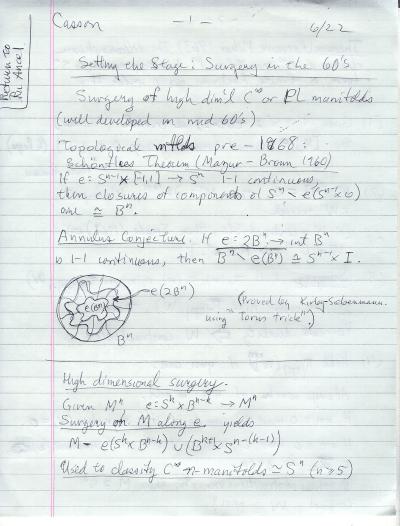 Return to
Ric Ancel
Casson
— 1 —
6/22
Setting the Stage: Surgery in the 60's
Surgery of high dim'l C∞ or PL manifolds
(well developed in mid 60's)
Topological mflds pre-1968:
Schönflies Theorem (Mazur-Brown 1960)
If e: Sⁿ⁻¹ × [-1,1] → Sⁿ 1-1 continuous,
then closures of components of Sⁿ \ e(Sⁿ⁻¹×0)
are ≅ Bⁿ.
Annulus Conjecture. If e: 2Bⁿ → int Bⁿ
is 1-1 continuous, then Bⁿ \ e(Bⁿ) ≅ Sⁿ⁻¹ × I.
e(2Bⁿ)
e(Bⁿ)
Bⁿ
(Proved by Kirby-Siebenmann
using "Torus trick".)
High dimensional surgery.
Given Mⁿ, e: Sᵏ × Bⁿ⁻ᵏ → Mⁿ
Surgery on M along e yields
M - e(Sᵏ × Bⁿ⁻ᵏ) ∪ (Bᵏ⁺¹ × Sⁿ⁻⁽ᵏ⁻¹⁾)
Used to classify C∞ n-manifolds ≃ Sⁿ (n ≥ 5)